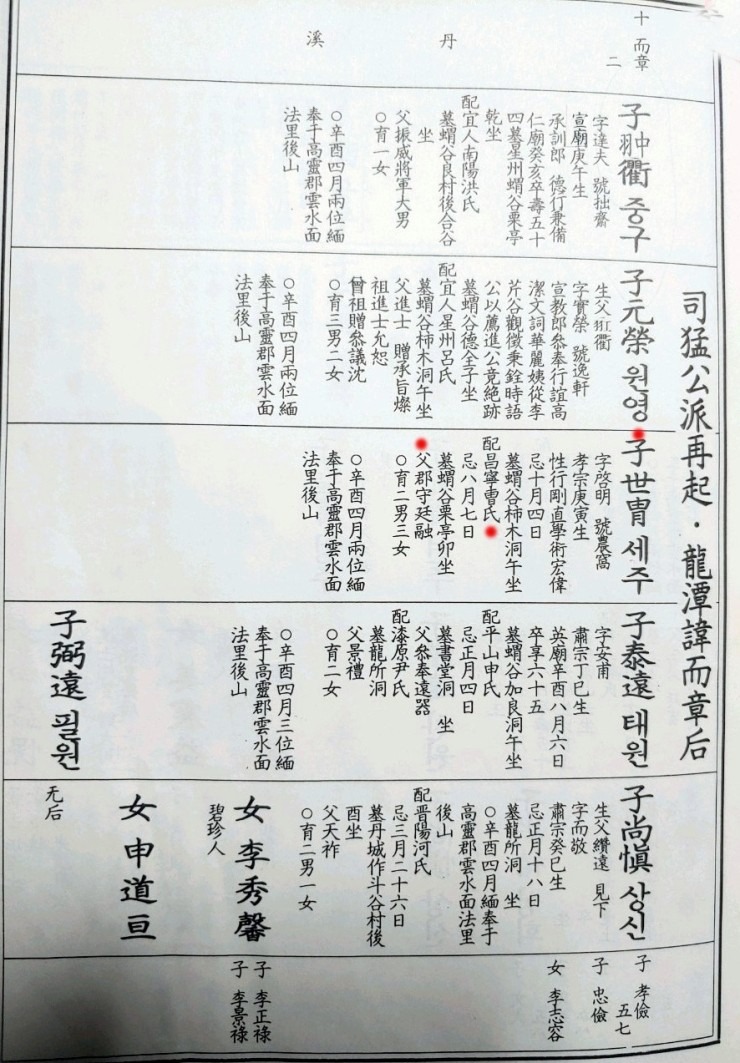 十 而章
二
丹
溪
司猛公派再起・龍潭諱而章后
子翀衢 중구
字逵夫 號拙齋
宣廟庚午生
承訓郎 德行兼備
仁廟癸亥卒壽五十
四墓星州蝟谷栗亭
乾坐
配宜人南陽洪氏
墓蝟谷良村後合谷
坐
父振威將軍大男
○育一女
○辛酉四月兩位緬
奉于高靈郡雲水面
法里後山
子元榮 원영
生父 衢
字實榮 號逸軒
宣教郎參奉行誼高
潔文詞華麗姨從李
芹谷觀徵秉銓時語
公以薦進公竟絶跡
墓蝟谷德全子坐
配宜人星州呂氏
墓蝟谷柿木洞午坐
父進士 贈承旨燦
祖進士允恕
曾祖贈參議沈
○育三男二女
○辛酉四月兩位緬
奉于高靈郡雲水面
法里後山
子世冑 세주
字啓明 號農窩
孝宗庚寅生
性行剛直學術宏偉
忌十月四日
墓蝟谷柿木洞午坐
配昌寧曺氏
忌八月七日
墓蝟谷栗亭卯坐
父郡守廷融
○育二男三女
○辛酉四月兩位緬
奉于高靈郡雲水面
法里後山
子泰遠 태원
字安甫
肅宗丁巳生
英廟辛酉八月六日
卒享六十五
墓蝟谷加良洞午坐
配平山申氏
忌正月四日
墓書堂洞 坐
父參奉遠器
配漆原尹氏
墓龍所洞
父景禮
○育二女
○辛酉四月三位緬
奉于高靈郡雲水面
法里後山
子弼遠 필원
子尚愼 상신
生父纘遠 見下
字而敬
肅宗癸巳生
忌正月十八日
墓龍所洞 坐
○辛酉四月緬奉于
高靈郡雲水面法里
後山
配晋陽河氏
忌三月二十六日
墓丹城作斗谷村後
酉坐
父天祚
○育二男一女
女 李秀馨
碧珍人
女 申道亘
无后
子 孝儉
五七
子 忠儉
女 李志容
子 李正祿
子 李景祿